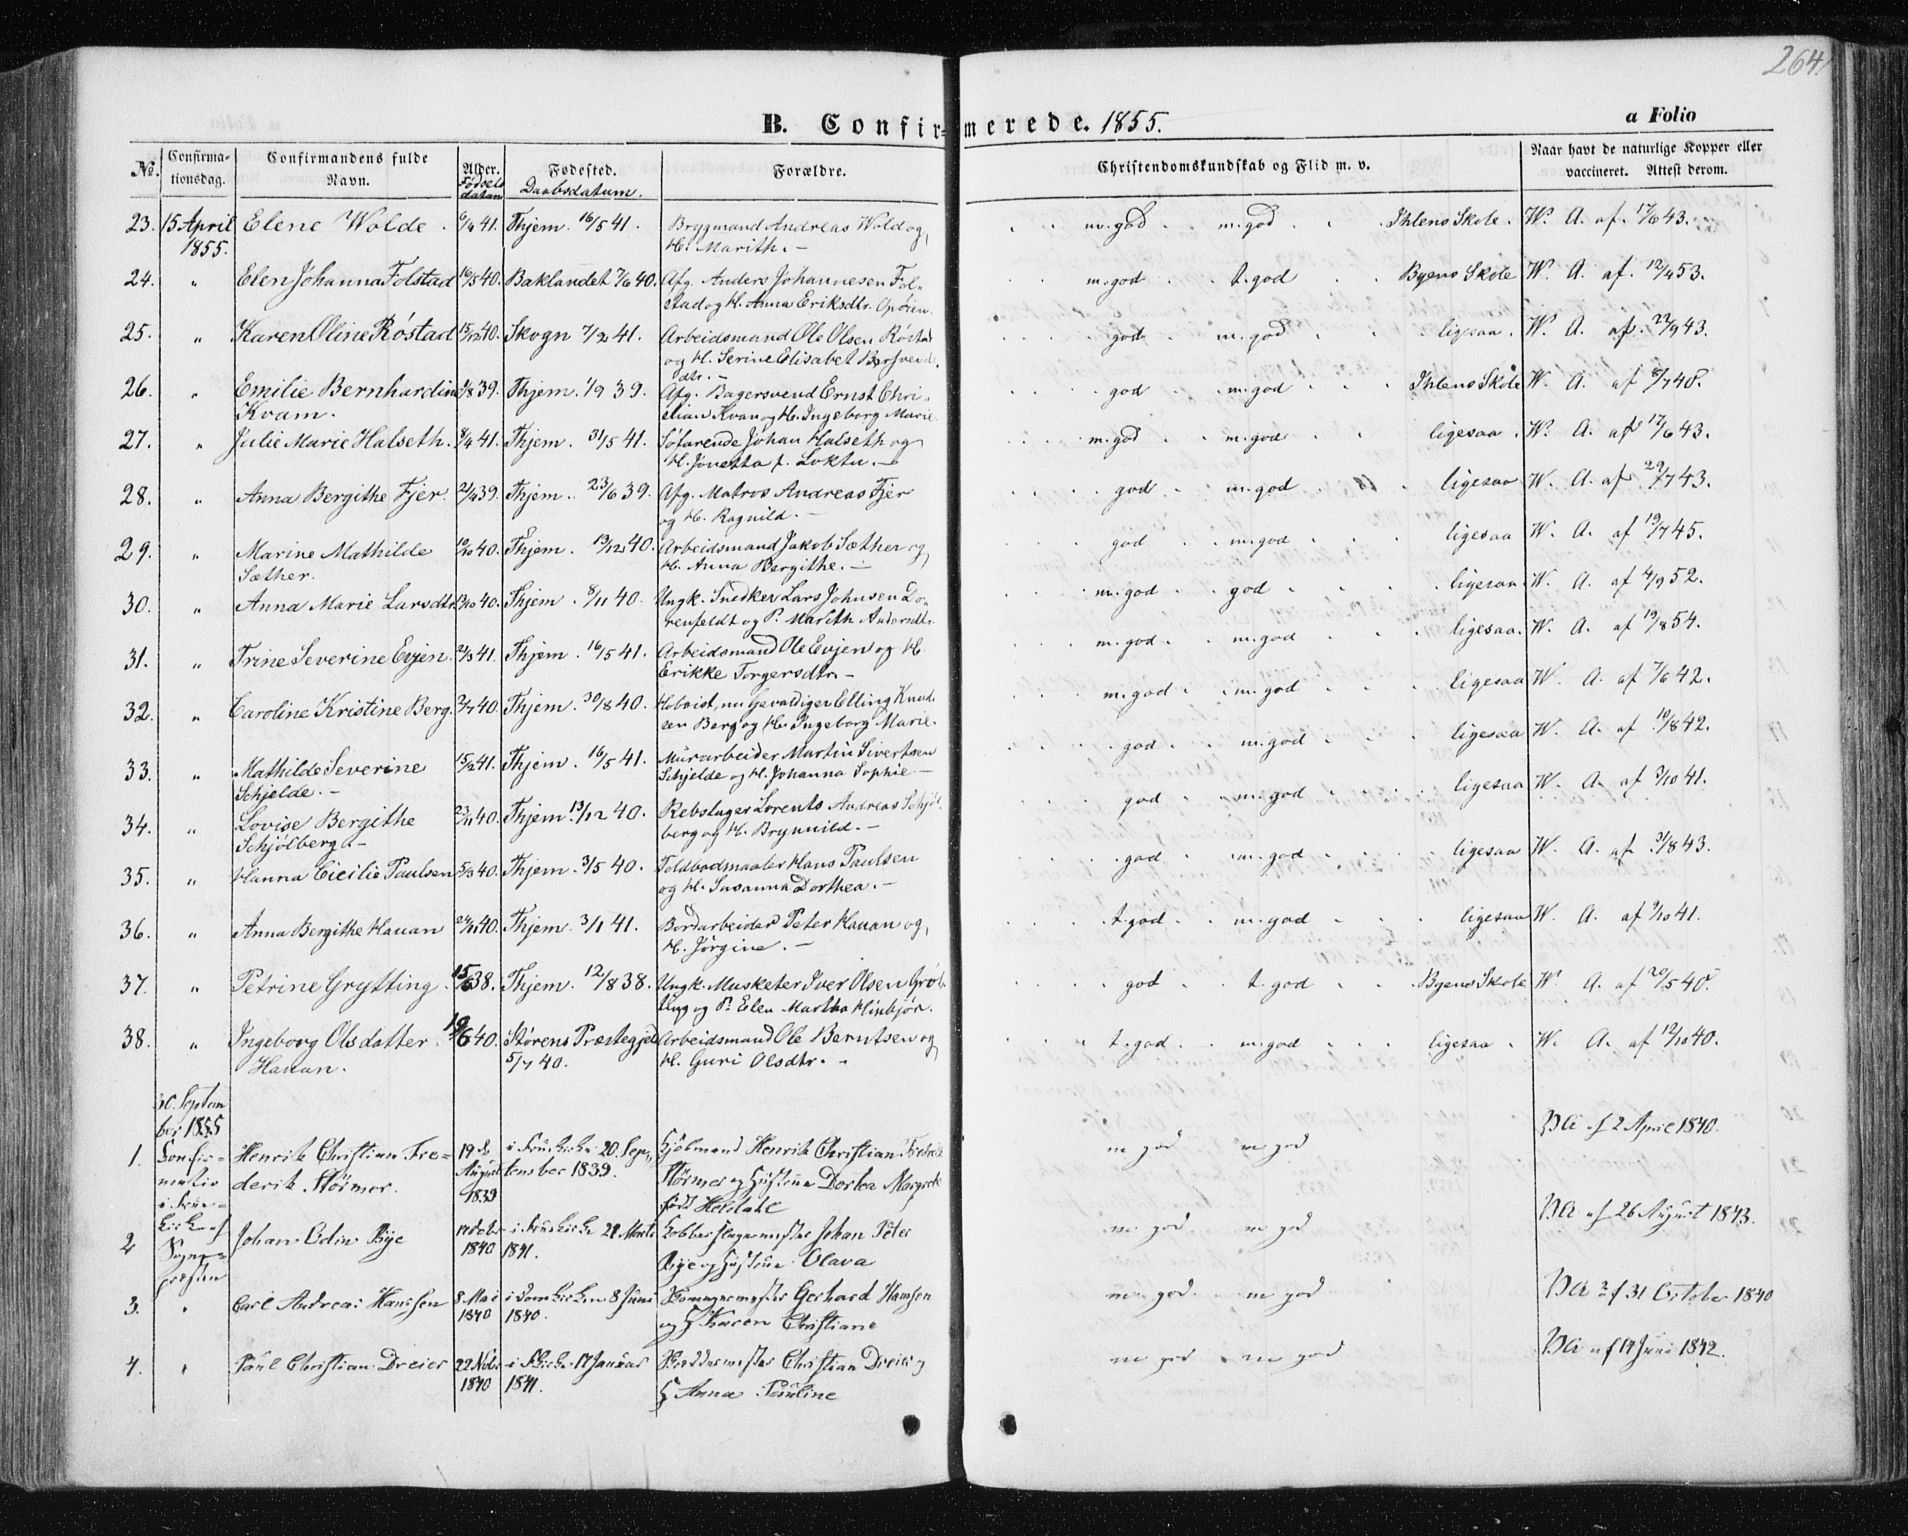 264
B. Confirmerede. 1855.
a Folio
No. Confirmationsdag. Confirmandens fulde Navn. Alder. Fødselsdatum Fødested. Daabsdatum. Forældre. Christendomskundskab og Flid m. v. Naar havt de naturlige Kopper eller vaccineret. Attest derom.
23. 15 April Elene Wolde . 41. Thjem. 16/5 41. Brygmand Andreas Wold og m.god m.god Ihlens Skole. W. A. af 17/6 43.
1855. H. Marith. –
24. „ Elen Johanna Folstad 16/5 40. Baklandet 7/6 40. Afg. Anders Johannesen Fol- m.god t.god Byens Skole W. A. af 12/4 53.
stad og H. Anna Eriksdtr.
25. „ Karen Oline Røstad 15/12 40. Skogn 7/2 41. Arbeidsmand Ole Olsen Røstad god m.god ligesaa. W. A. af 22/9 43.
og H. Serine Elisabet
dtr. –
26. „ Emilie Bernhardine 39. Thjem. 1/9 39. Afg. Bagersvend Ernst Chri- god m.god Ihlens Skole W. A. af 8/7 48.
Kvam. stian Kvam og H. Ingeborg Marie
27. „ Julie Marie Halseth. 41. Thjem. 31/5 41. Søfarende Johan Halseth og m.god m.god ligesaa. W. A. af 17/6 43.
H. Jonetta f. Loktu. –
28. „ Anna Bergithe Fjer. 39. Thjem. 23/6 39. Afg. Matros Andreas Fjer god m.god ligesaa W. A. af 29/7 43.
og H. Ragnild. –
29. „ Marine Mathilde 40. Thjem. 13/12 40. Arbeidsmand Jakob Sæther og god m.god ligesaa W. A. af 19/7 45.
Sæther. H. Anna Bergithe. –
30. „ Anna Marie Larsdtr. 40. Thjem. 8/11 40. Ungk. Snedker Lars Johnsen Lo- m.god god ligesaa W. A. af 4/9 52.
renfeldt og P. Marith Andersdtr.
31. „ Trine Severine Evjen. 41. Thjem. 16/5 41. Arbeidsmand Ole Evjen og H. m.god m.god ligesaa. W. A. af 19/8 54.
Erikke Torgersdtr. –
32. „ Caroline Kristine Berg. 40 Thjem. 30/8 40. Hoboist, nu Gevaldiger Elling Knud- m.god m.god ligesaa W. A. af 7/6 42.
sen Berg og H. Ingeborg Marie.
33. „ Mathilde Severine 15/2 41. Thjem. 16/5 41. Murarbeider Martin Sivertsen god m.god ligesaa W. A. af 10/8 42.
Schjelde. – Schjelde og H. Johanna Sophie. –
34. „ Lovise Bergithe 23/11 40. Thjem. 13/12 40. Rebslager Lorents Andreas Schjøl- god m.god ligesaa W. A. af 3/10 41.
Schjølberg – berg og H. Brynnild. –
35. „ Hanna Cicilie Paulsen 5/3 40. Thjem. 3/5 40. Toldbodmaaler Hans Paulsen god m.god ligesaa W. A. af 31/8 43.
og H. Susanna Dorthea. –
36. „ Anna Bergithe Hauan 40. Thjem. 3/1 41. Bordarbeider Peter Hauan og t.god m.god ligesaa W. A. af 9/10 41.
H. Jørgine. –
37. „ Petrine Grytting. 38. Thjem. 12/8 38. Ungk. Musketer Iver Olsen god t.god Byens Skole W. A. af 20/5 40.
og P. Elen Martha
38. „ Ingeborg Olsdatter 19/6 40. Størens Præstegjeld Arbeidsmand Ole Berntsen og t.god m.god ligesaa W. A. af 12/10 40.
Hauan. 5/7 40. H. Guri Olsdtr. –
30. Septem
ber 1855
1. Confir- Henrik Christian Fre- 19de i Frue Kirke 20. Sep- Henrik Christian Fredrik m god m god Va. af 2 April 1840.
matio derik Størmer. August tember 1839. Størmer og Hustrue Dortea Margrete
i Frue- 1839 født Heldahl
2 Kirke af Johan Odin Bye 1840 i Frue Kirke 21 Marts Kobberslagermester Johan Peter m god m god Va af 26 August 1843.
Sogne- 1841. Bye og Hustrue Olava
præsten
3. „ Carl Andreas Hanssen 8 Mai i Domkirken 8 Juni Gerhard Hansen m god m god Va af 31 October 1840
1840 1840. og H Karen Christiane
4. „ Paul Christian Dreier 22 Nvbr i Kirke 17 Januar Christian Dreier og m god m god Va af 14 Juni 1842.
1840 1841. H Anna Pauline